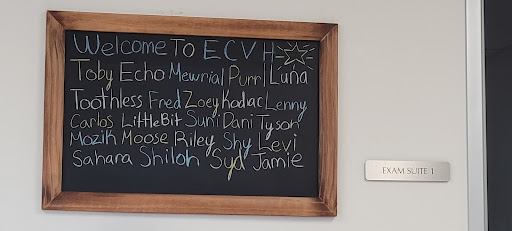 Welcome To ECVH
Toby Echo Mewrial Purrl Luna
Toothless Fred Zoey Kodac Lenny
Carlos LittleBit Suni Dani Tyson
Mozih Moose Riley Shy Levi
Sahara Shiloh Syd Jamie
EXAM SUITE 1